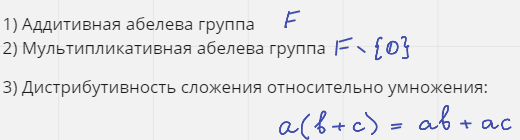 1) Аддитивная абелева группа F
2) Мультипликативная абелева группа F \ {0}
3) Дистрибутивность сложения относительно умножения:
a(b+c) = ab + ac